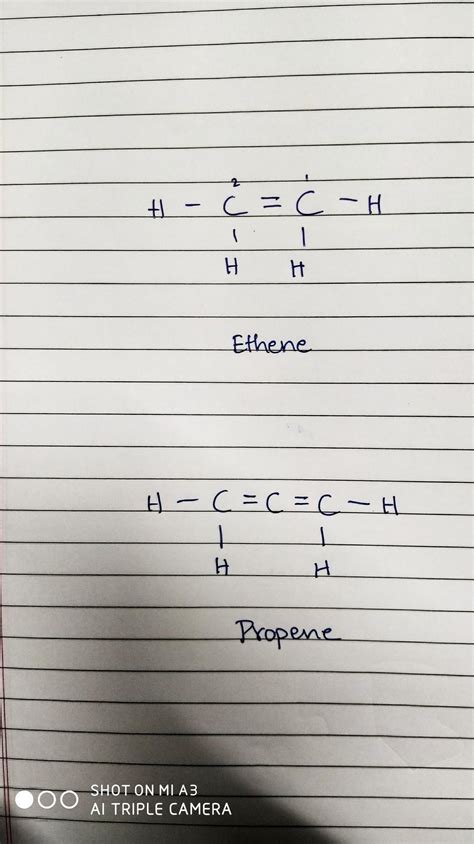 2 1
H - C = C - H
| |
H H
Ethene
H - C = C = C - H
| |
H H
Propene
SHOT ON MI A3
AI TRIPLE CAMERA